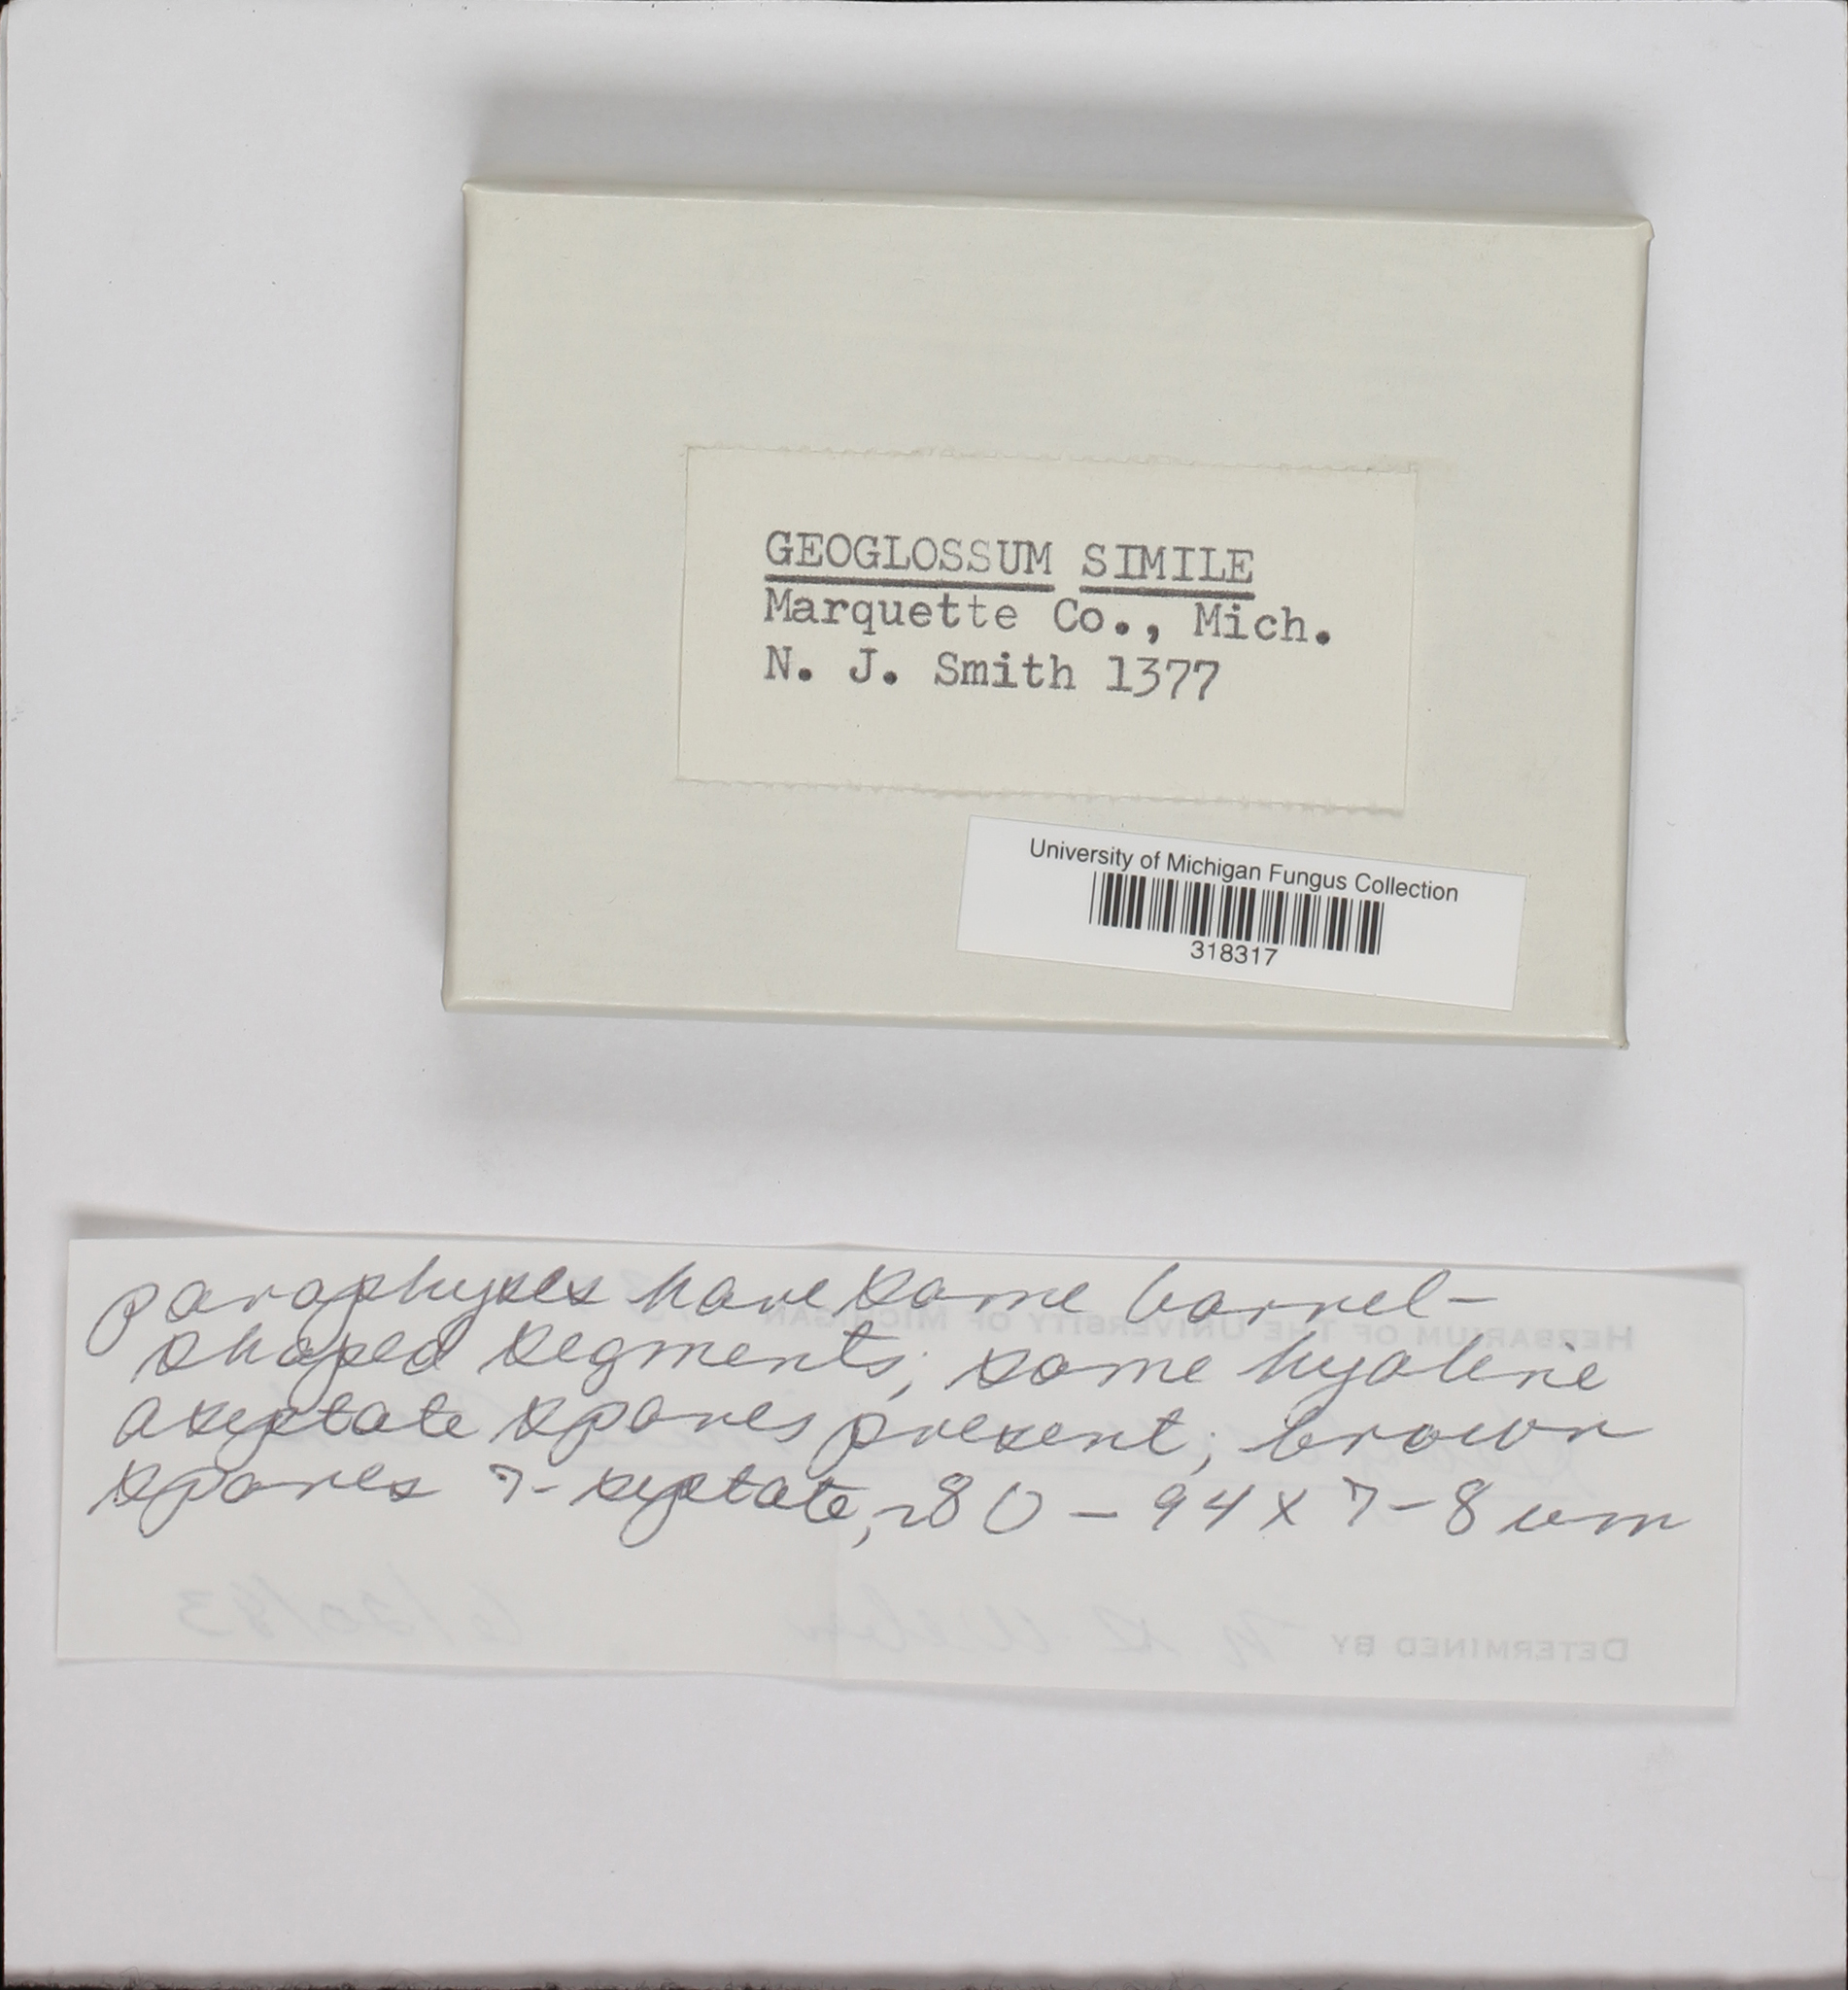 GEOGLOSSUM SIMILE
Marquette Co., Mich.
N. J. Smith 1377
University of Michigan Fungus Collection
318317
paraphyses have some barrel-
shaped segments; some hyaline
aseptate spores present; brown
spores 7-septate, ~80-94 x 7-8 um
HERBARIUM OF THE UNIVERSITY OF MICHIGAN
DETERMINED BY N. S. Weber 6/20/83